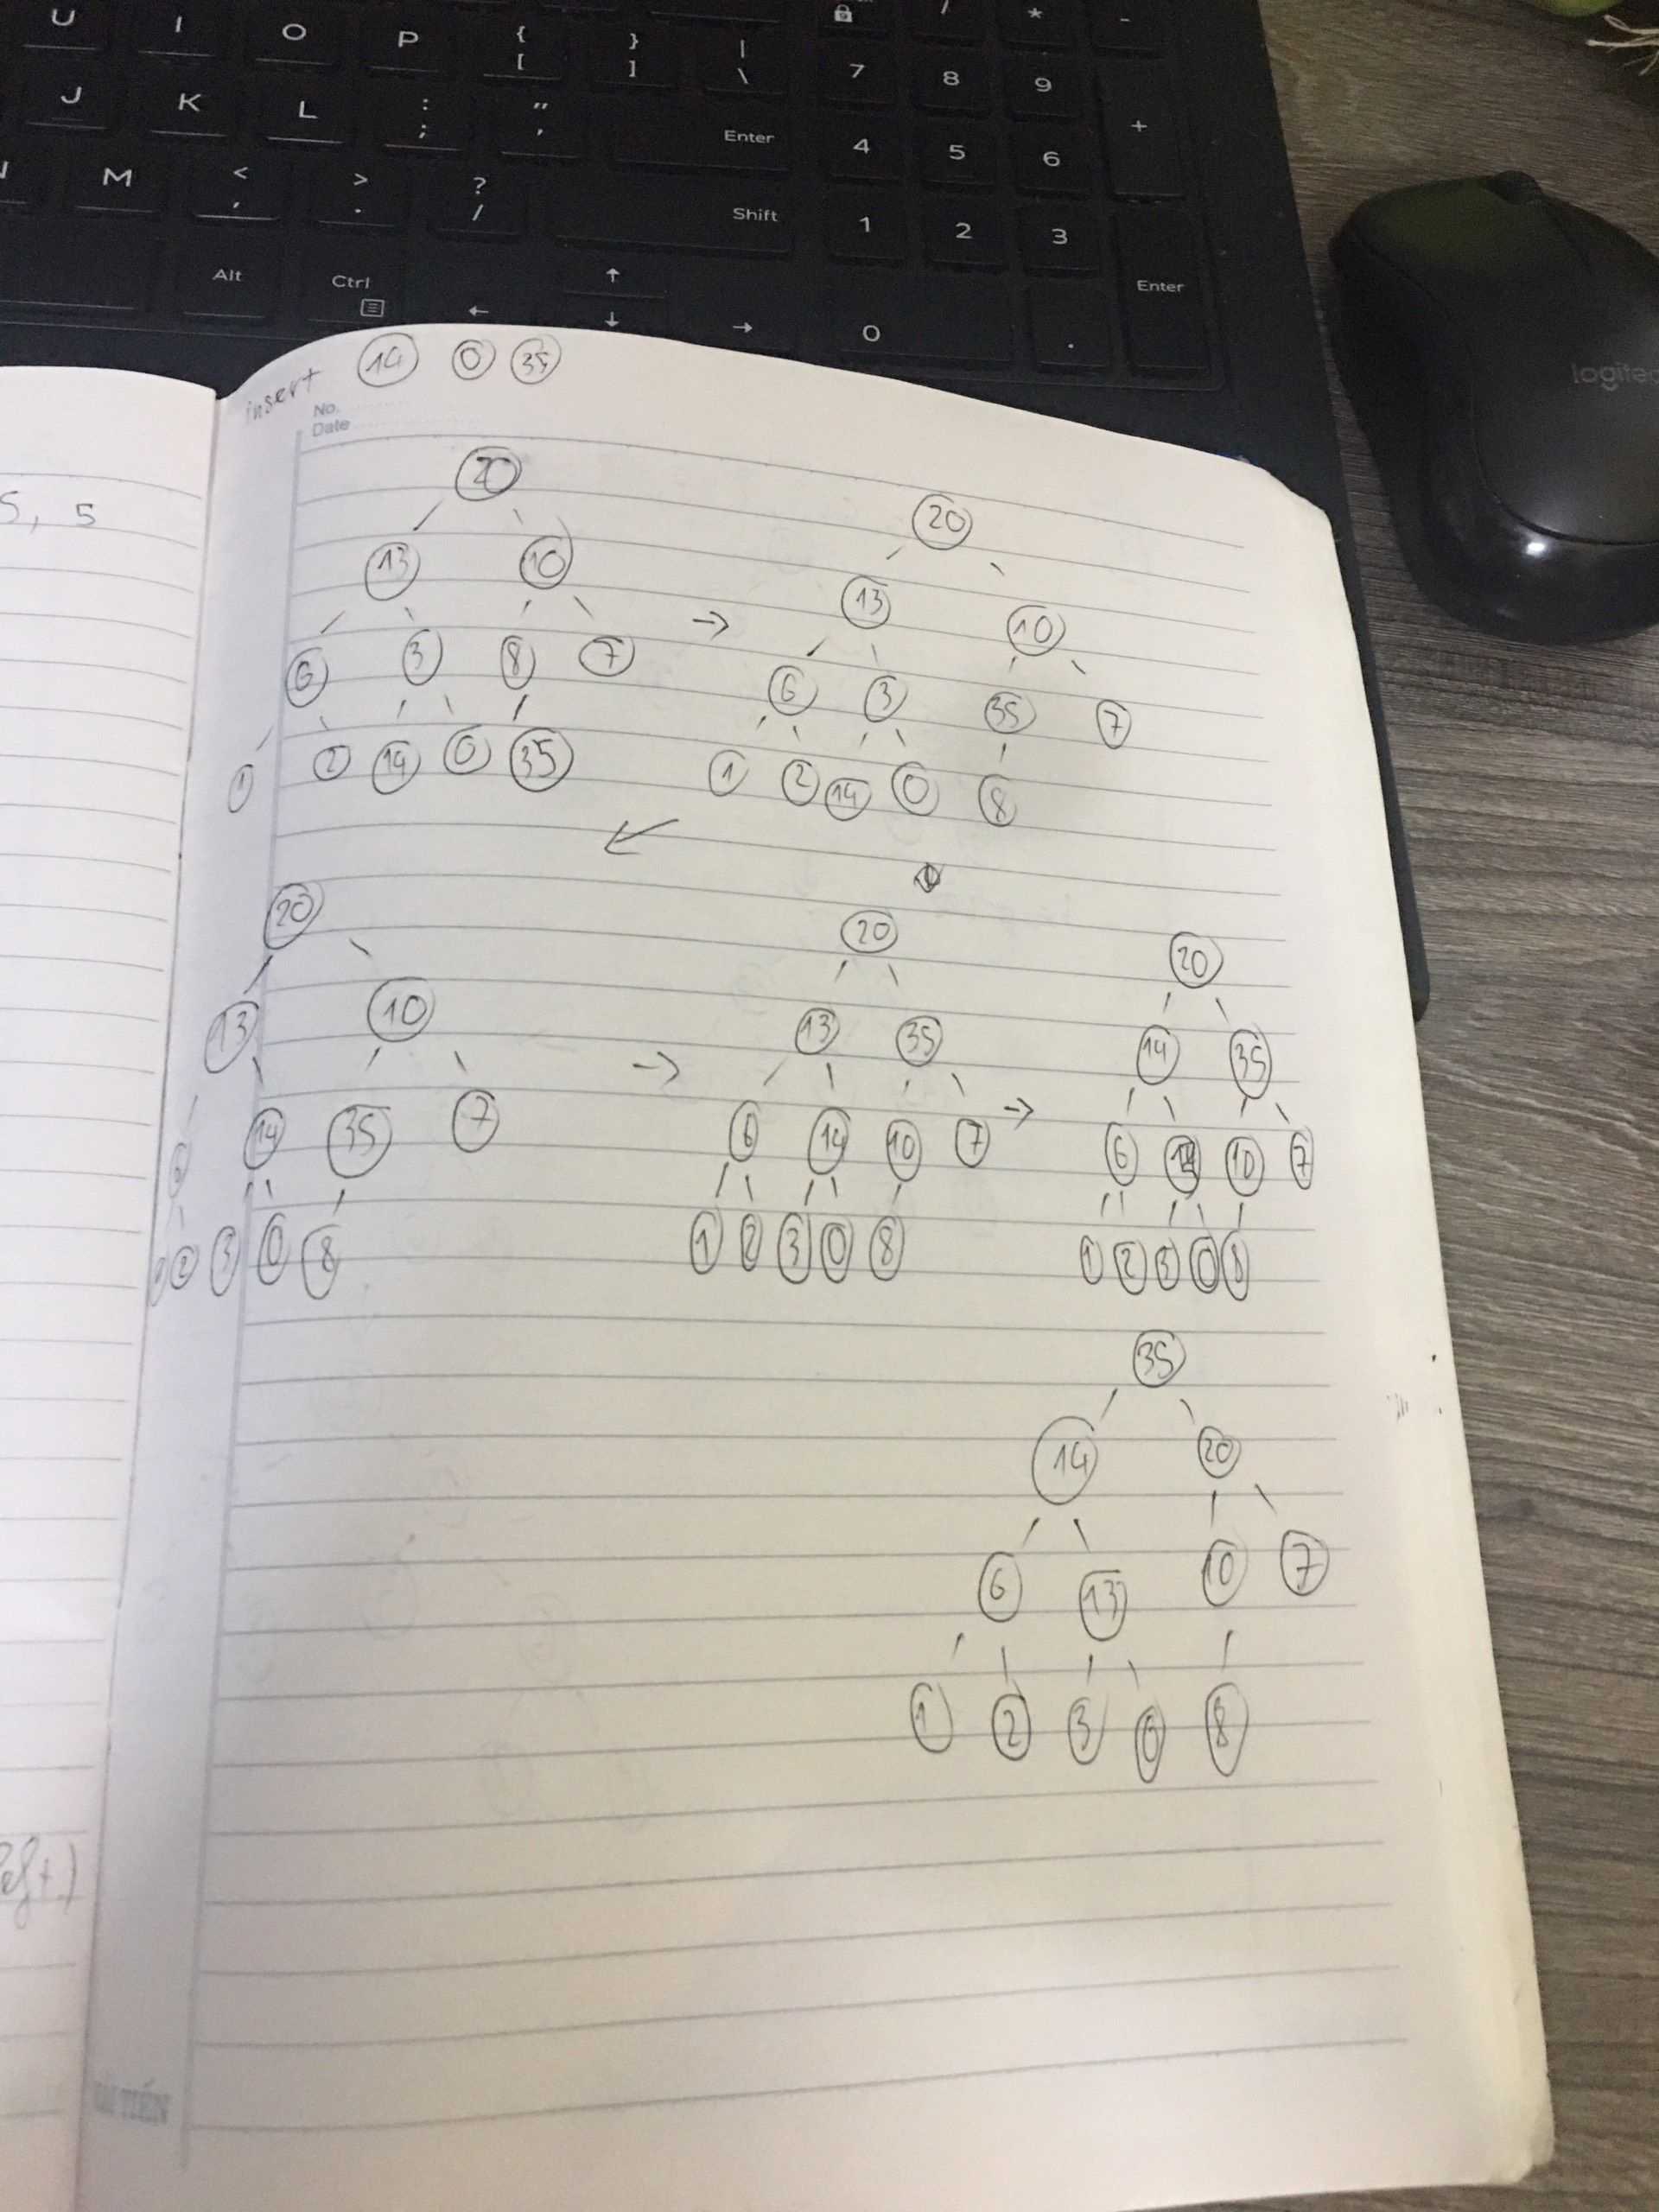 U I O P { [ } ] | \ 7 8 9 / * -
J K L : ; " ' Enter 4 5 6 +
M < , > . ? / Shift 1 2 3
Alt Ctrl ← ↑ ↓ → 0 . Enter
logitec
insert 14 0 35
No.
Date
5, 5
20
13 10
6 3 8 7
1 2 14 0 35
→
20
13 10
6 3 35 7
1 2 14 0 8
←
20
13 10
6 14 35 7
1 2 3 0 8
→
20
13 35
6 14 10 7
1 2 3 0 8
→
20
14 35
6 10 7
1 2 3 0 8
35
14 20
6 13 10 7
1 2 3 0 8
TIẾN